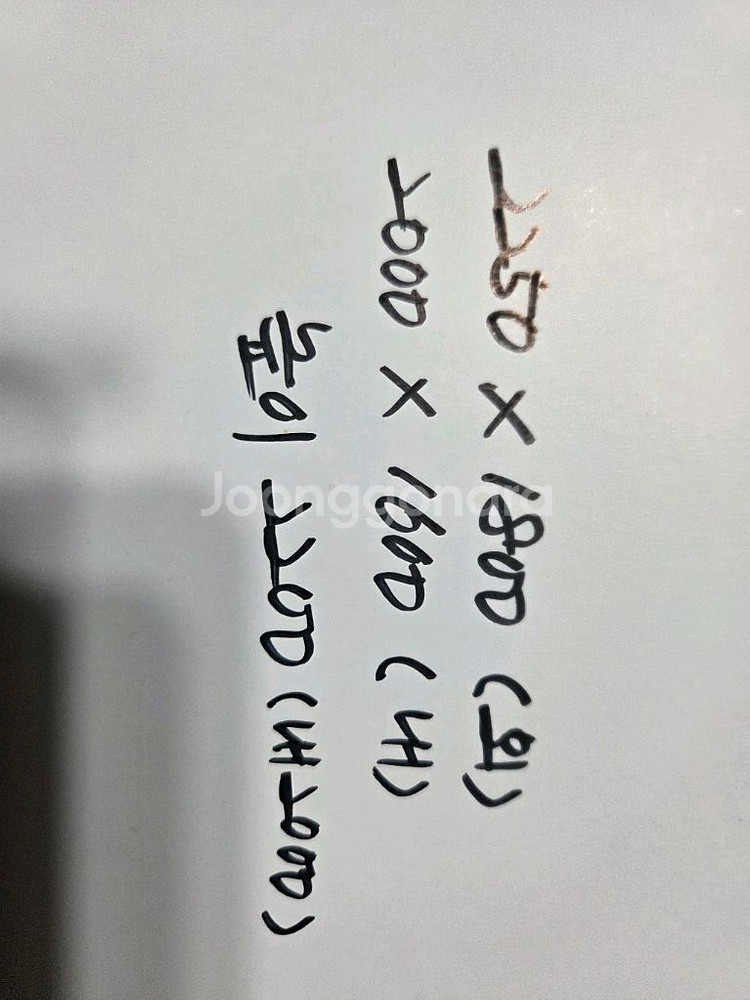 2250 X 1800 (외)
2000 X 1600 (내)
높이 2200 (내2000)
Joonggonara